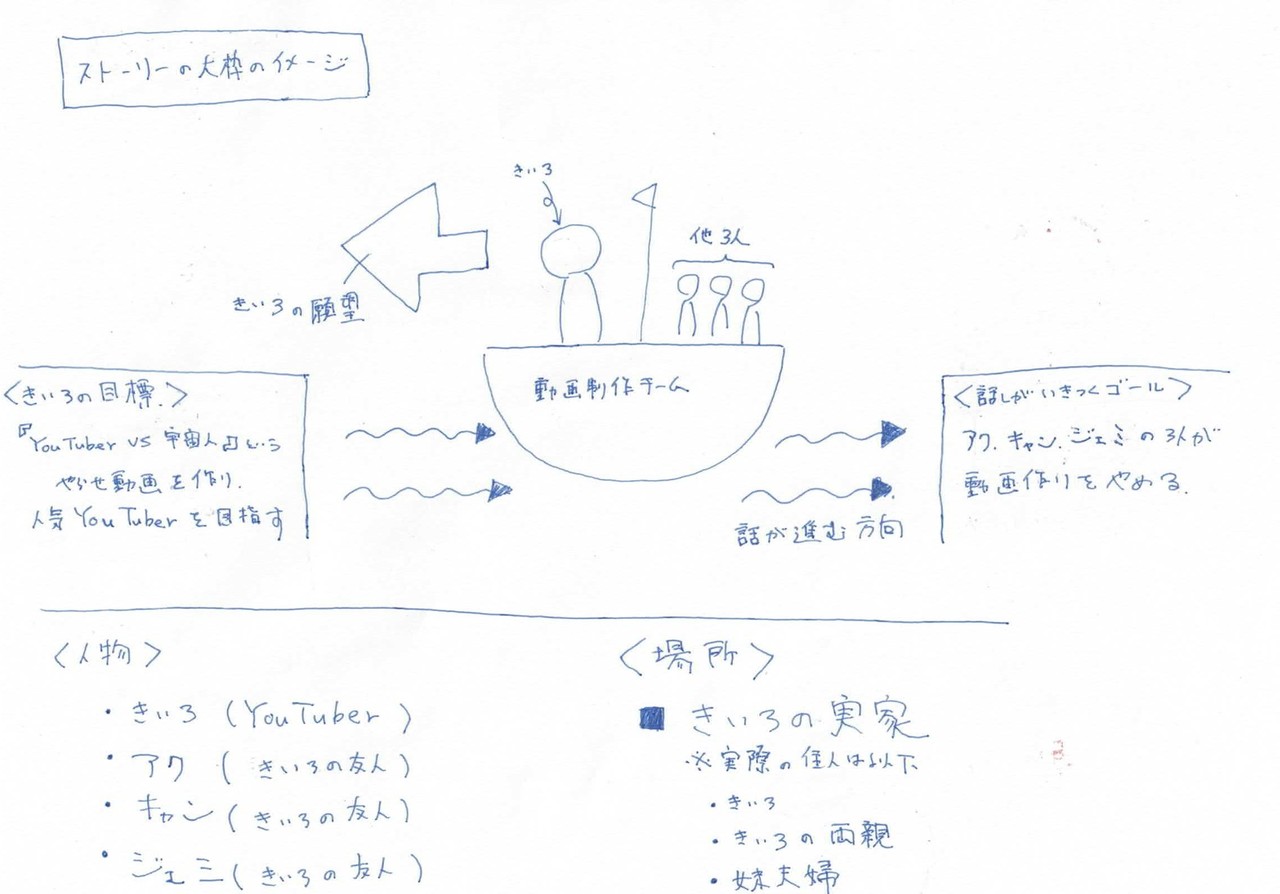 ストーリーの大枠のイメージ
きいろ
他3人
きいろの願望
動画制作チーム
〈きいろの目標〉
『YouTuber VS 宇宙人』という
やらせ動画を作り.
人気YouTuberを目指す
〈話しがいきつくゴール〉
アク.キャン.ジェミの3人が
動画作りをやめる.
話が進む方向
〈人物〉
・きいろ (YouTuber)
・アク (きいろの友人)
・キャン (きいろの友人)
・ジェミ (きいろの友人)
〈場所〉
■ きいろの実家
※実際の住人は以下
・きいろ
・きいろの両親
・妹夫婦